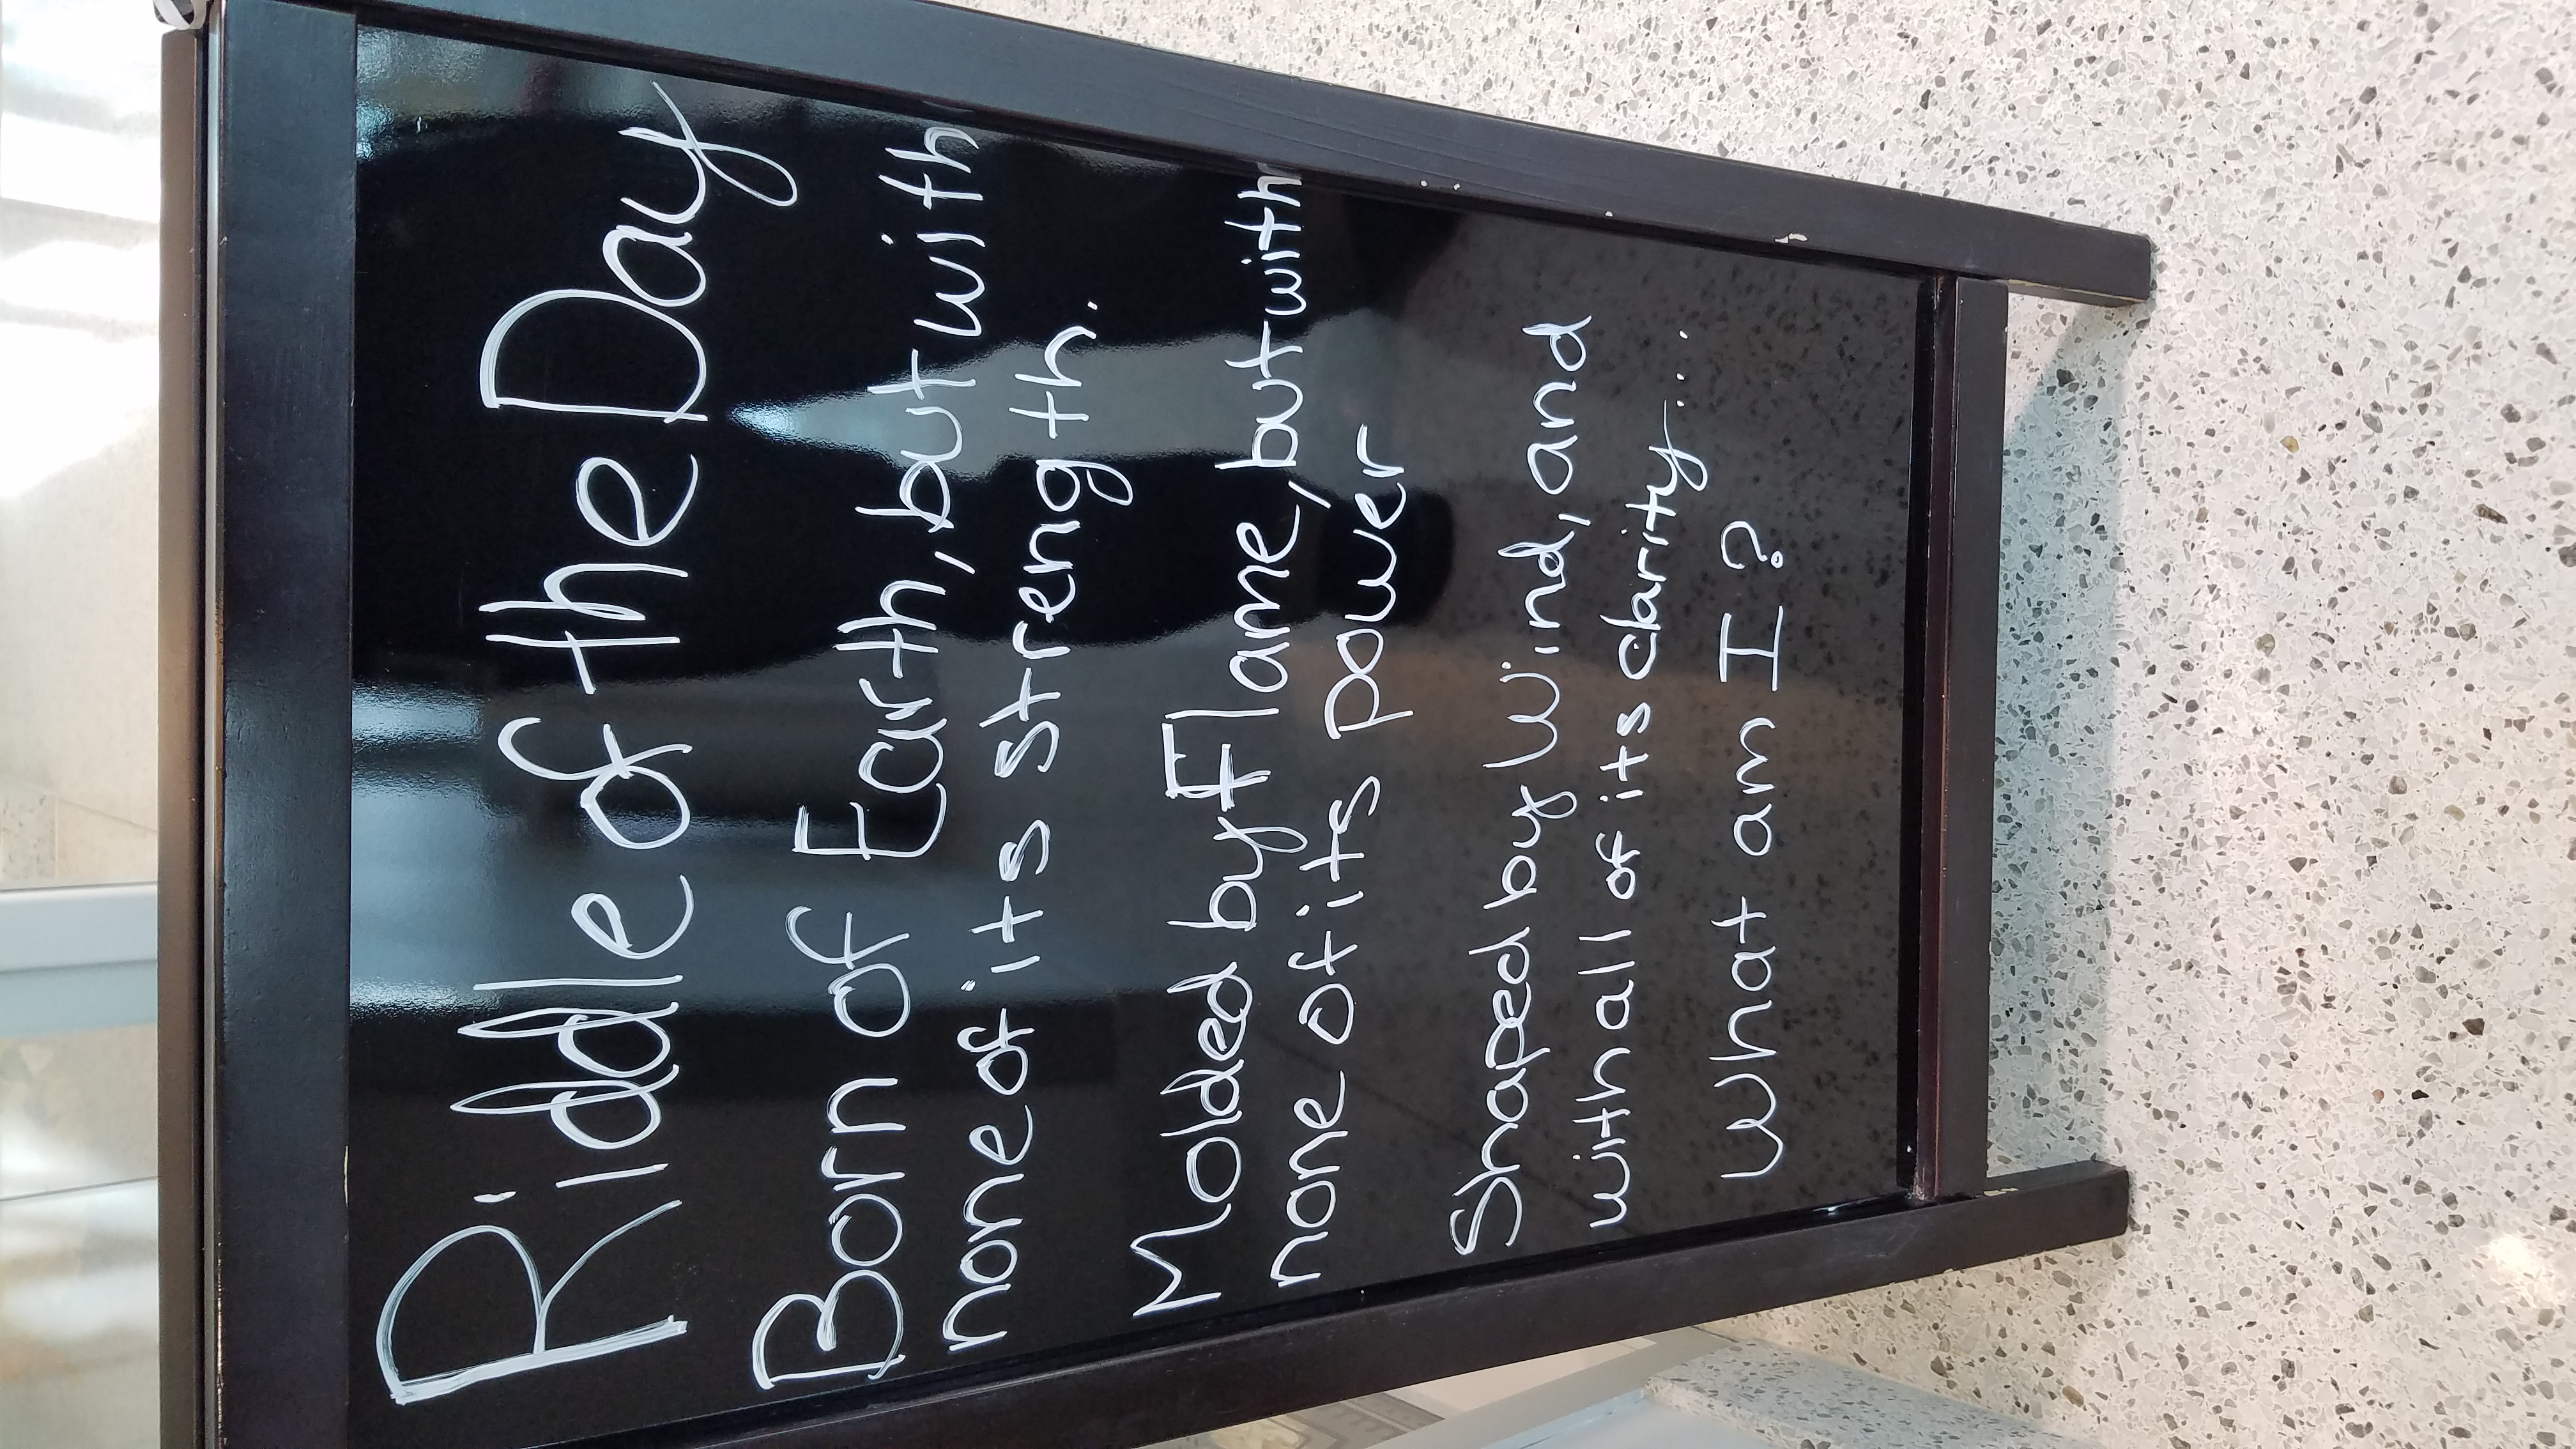 Riddle of the Day
Born of Earth, but with
none of its strength.
Molded by Flame, but with
none of its power
Shaped by Wind, and
with all of its clarity...
What am I?